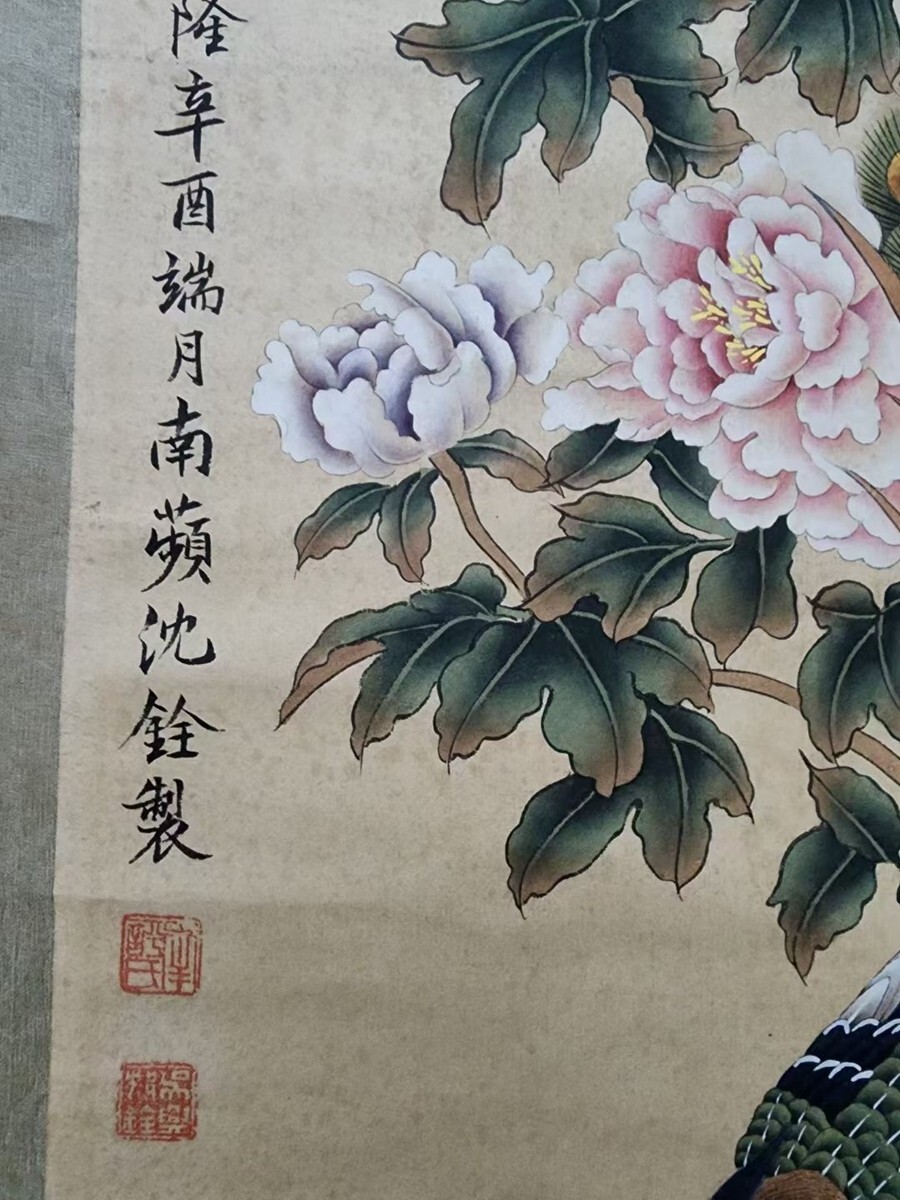 隆辛酉端月南蘋沈銓製